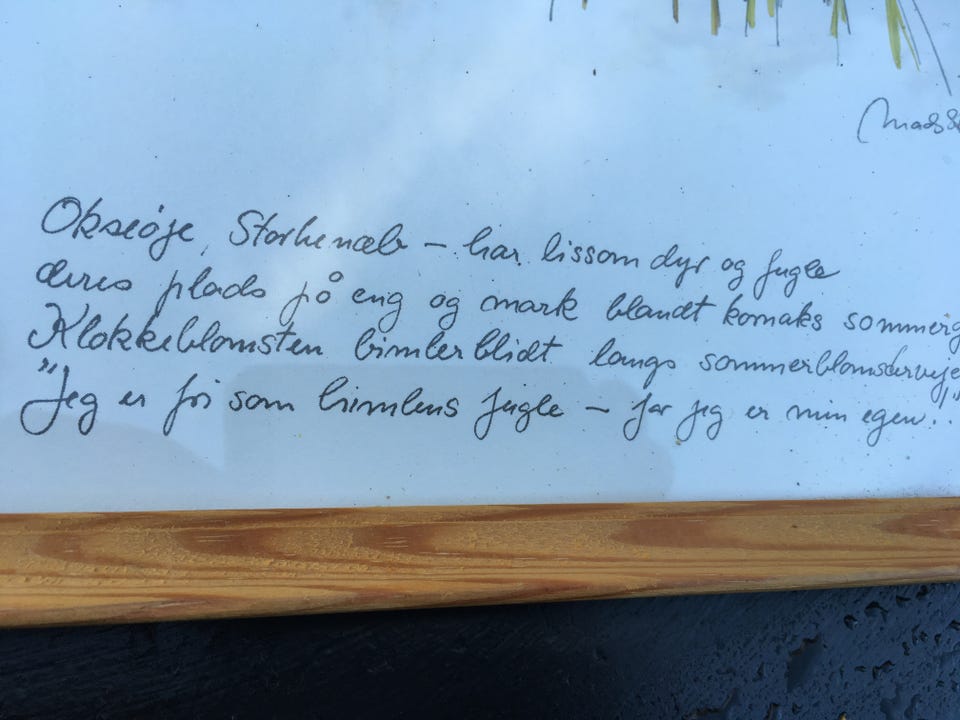 Mads
Okseøje, Storkenæb – har lissom dyr og fugle
deres plads på eng og mark blandt kornaks
Klokkeblomsten bimler blidt langs
"Jeg er fri som himlens fugle – for jeg er min egen.."